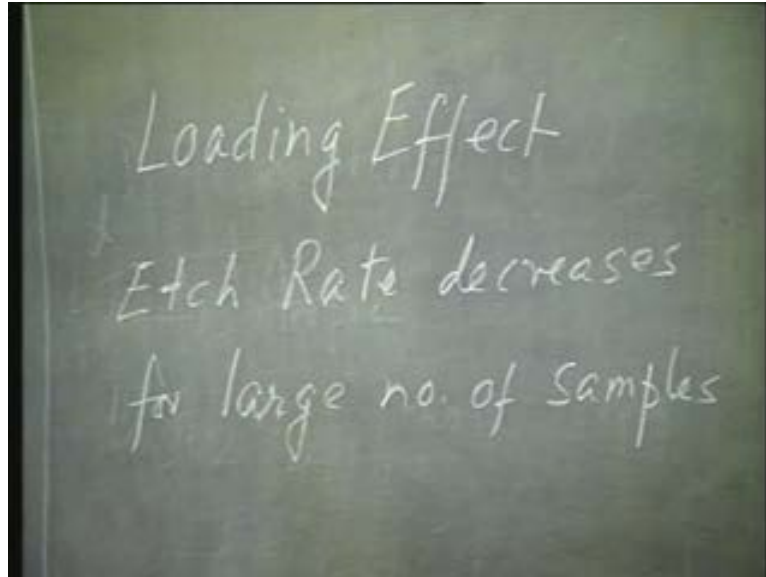 Loading Effect
Etch Rate decreases
for large no. of samples